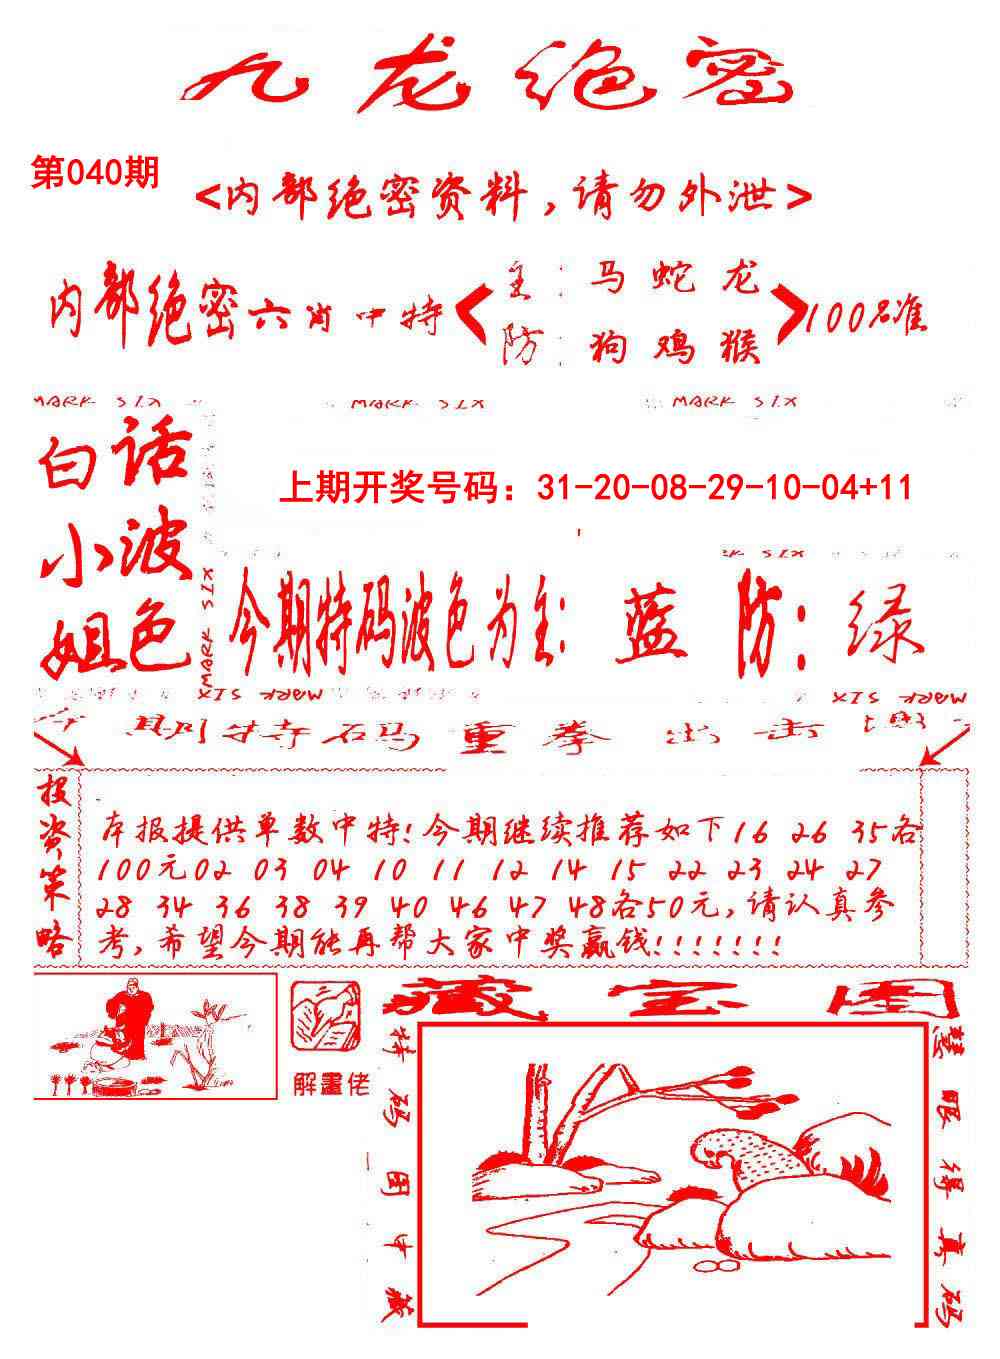 九龙绝密
第040期
<内部绝密资料,请勿外泄>
内部绝密六肖中特
主:马蛇龙
防:狗鸡猴
100%准
MARK SIX MARK SIX MARK SIX
白话
小波
姐色
上期开奖号码：31-20-08-29-10-04+11
MARK SIX
今期特码波色为主:蓝 防:绿
MARK SIX MARK SIX MARK SIX
期特码重拳出击
投资策略
本报提供单数中特!今期继续推荐如下16 26 35各
100元02 03 04 10 11 12 14 15 22 23 24 27
28 34 36 38 39 40 46 47 48各50元,请认真参
考,希望今期能再帮大家中奖赢钱!!!!!!!
解畫佬
藏宝图
特码图中藏
慧眼得真码